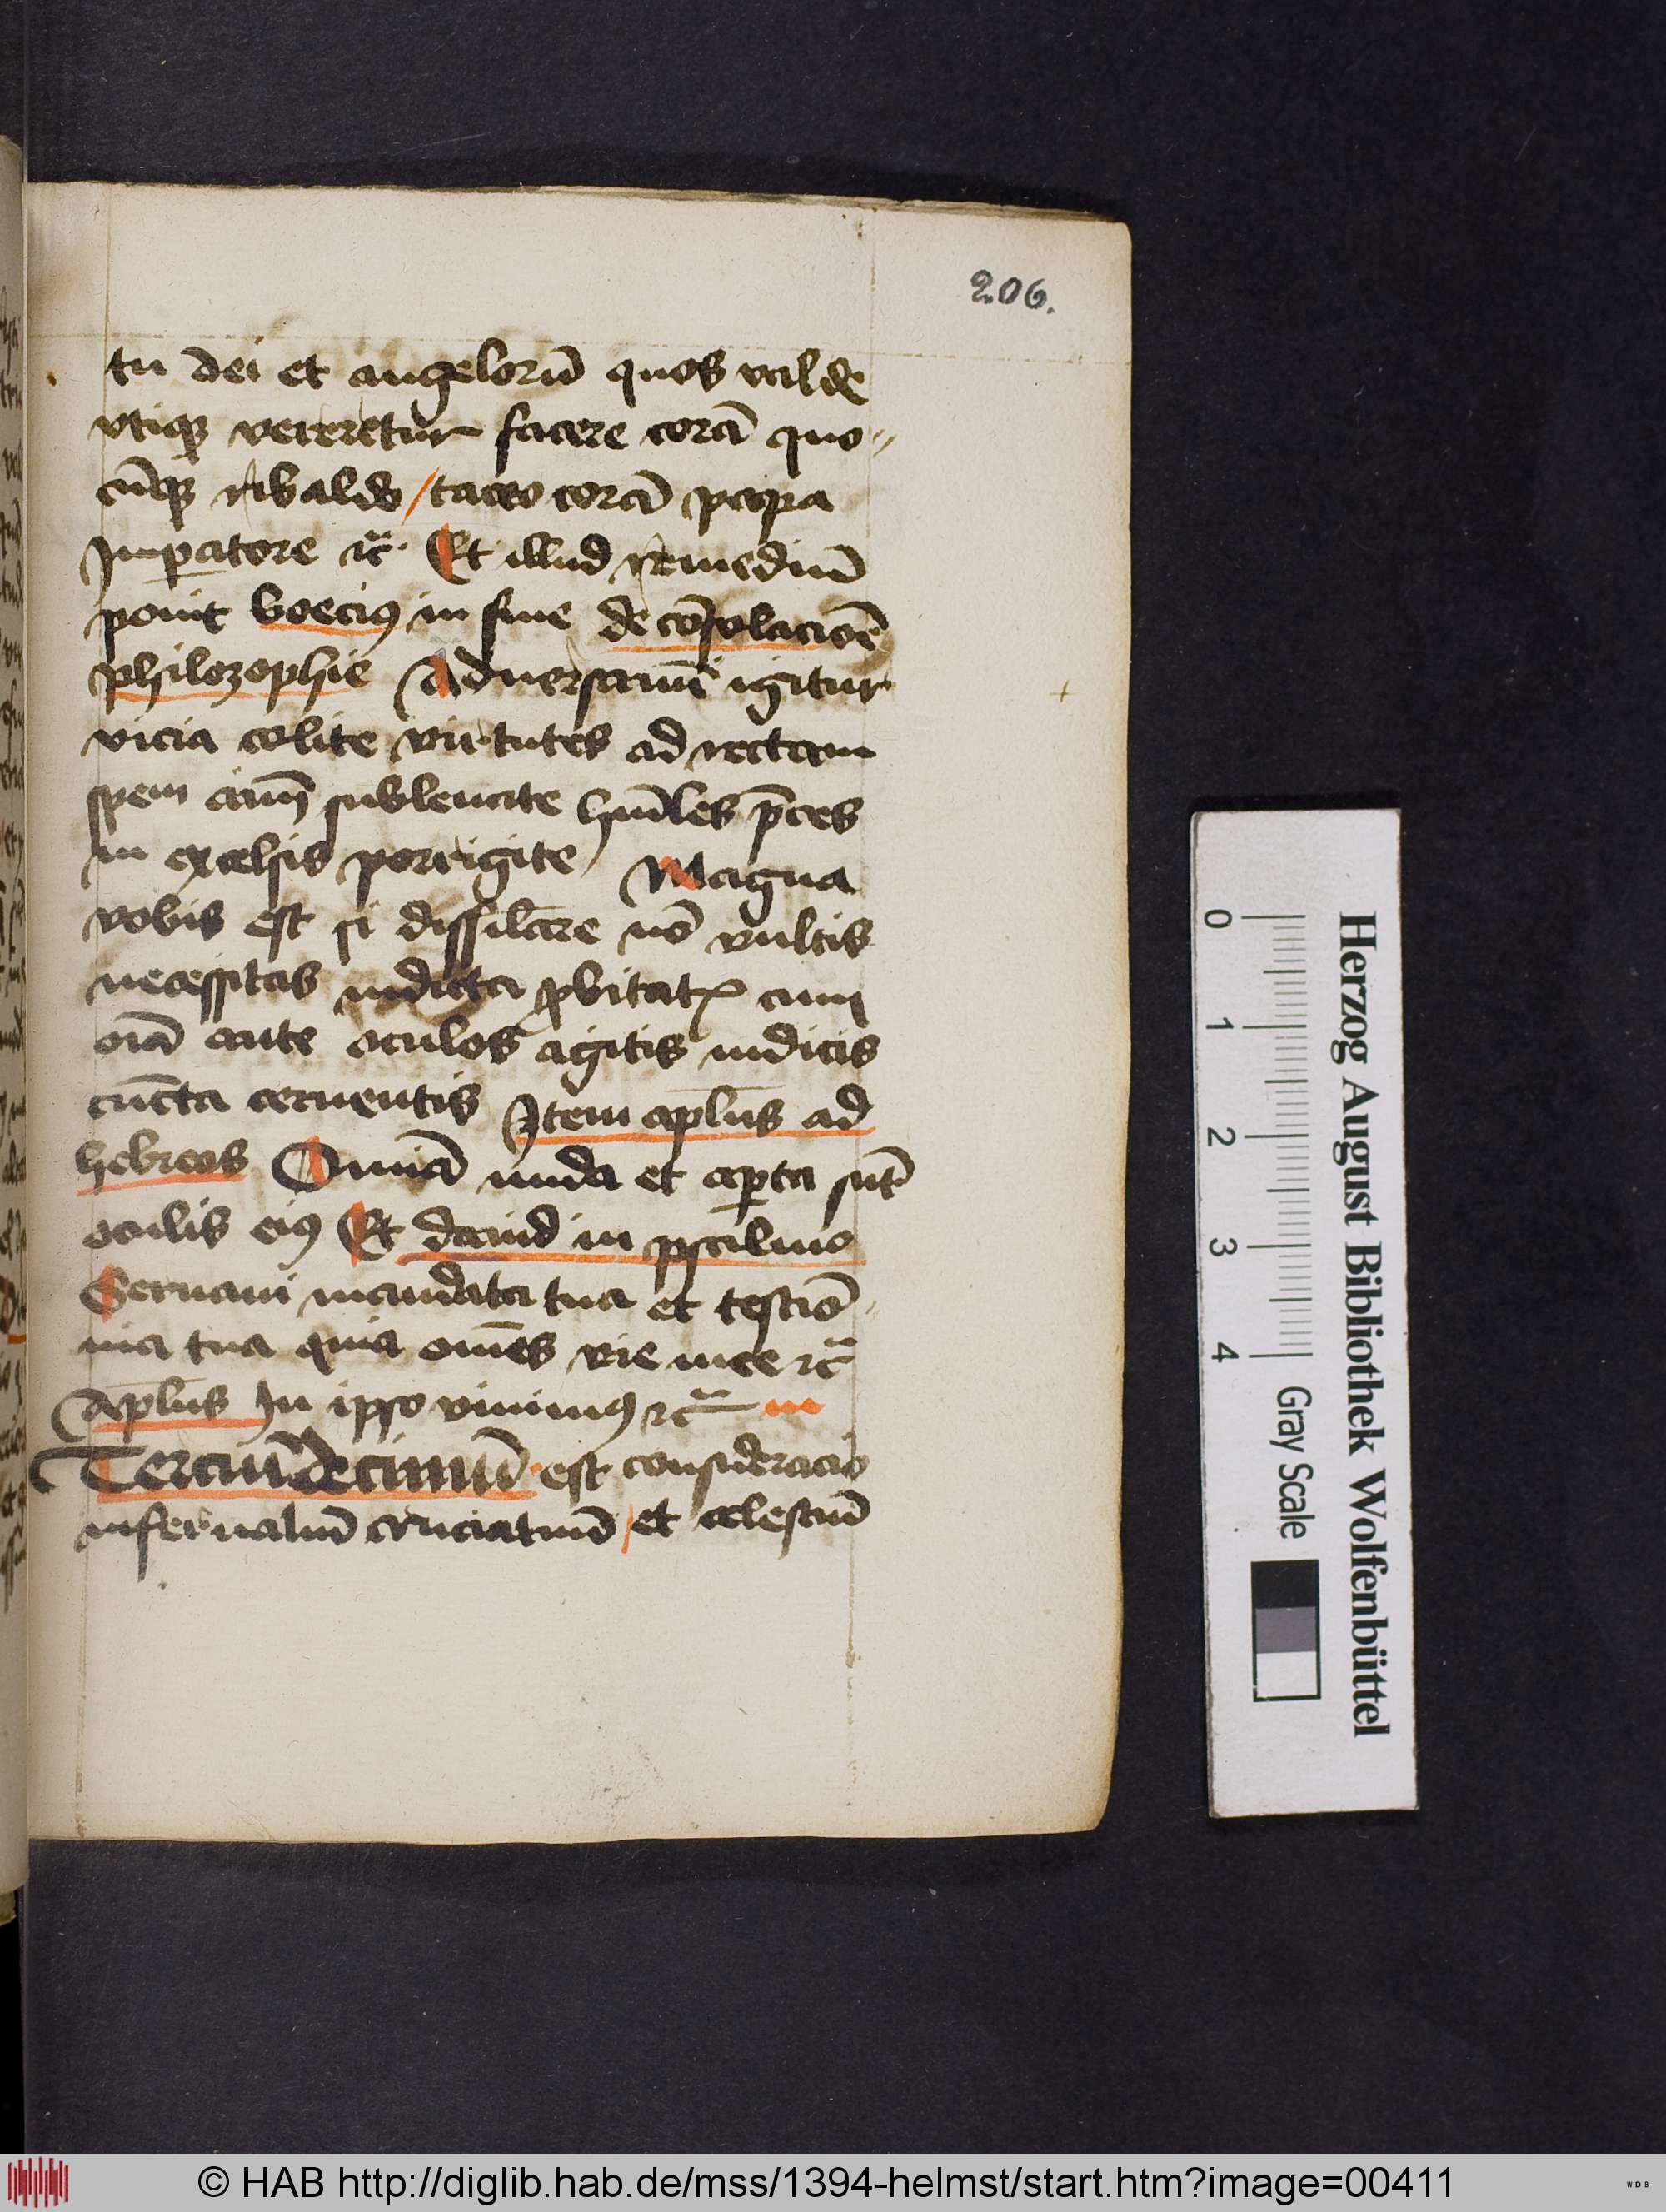 206.
tu dei et angelorū quos valde
vtiqꝫ vereretur facere corā quo〃
cūqꝫ ribaldo / taceo corā papa
Imꝑatore ⁊c̄ Et illud remediū
ponit boeciꝰ in fine de cōsolacioē
philozophie Aduersamī igitur
vicia colite virtutes ad rectam
spem aīm subleuate humīles p̄ces
in excelsis porrigite Magna
vobis est si dissilāre nō vultis
necessitas indicta ꝓbitatꝭ cum
oīa ante oculos agitis iudicis
cūcta cernentis Item aplūs ad
hebreos Omnia nuda et aꝑta sūt
oculis eiꝰ Et dauid in psalmo
Seruaui mandata tua et testiō〃
nia tua quia om̄es vie mee ⁊c̄
Aplūs In ipso viuimꝰ ⁊c̄
Terciūdecimū est consideracio
infernaliū cruciatuū / et celestiū
Herzog August Bibliothek Wolfenbüttel
0 1 2 3 4 Gray Scale
© HAB http://diglib.hab.de/mss/1394-helmst/start.htm?image=00411
WDB